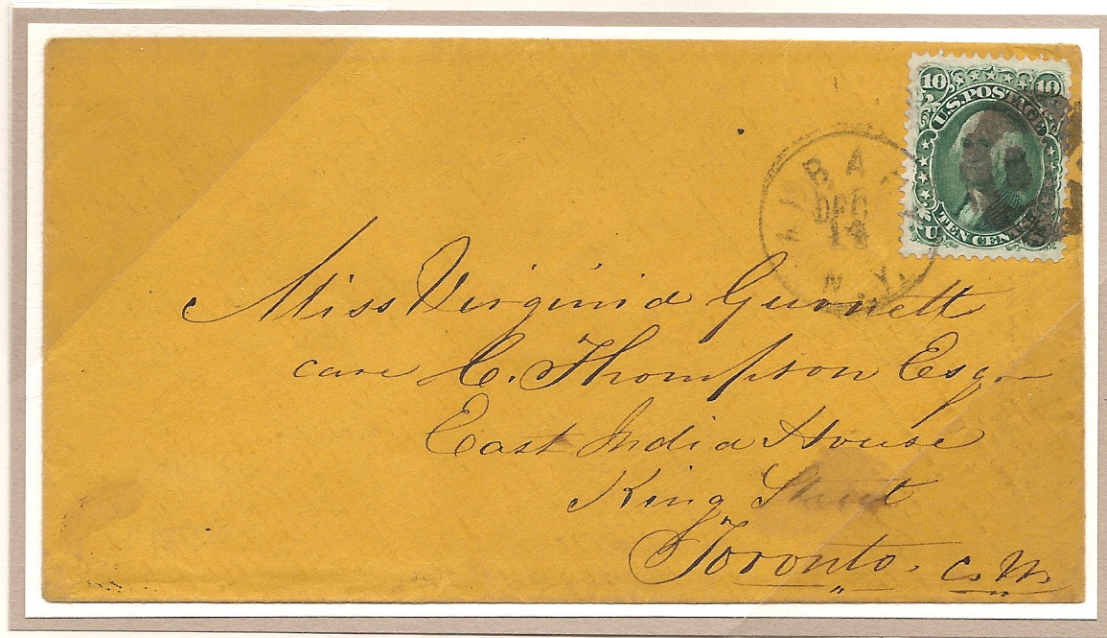 10 10
U.S. POSTAGE
U TEN CENTS
DEC
14
N.Y.
Miss Virginia Gurnett
care C. Thompson Esqr
East India House
King Street
Toronto. C. W.